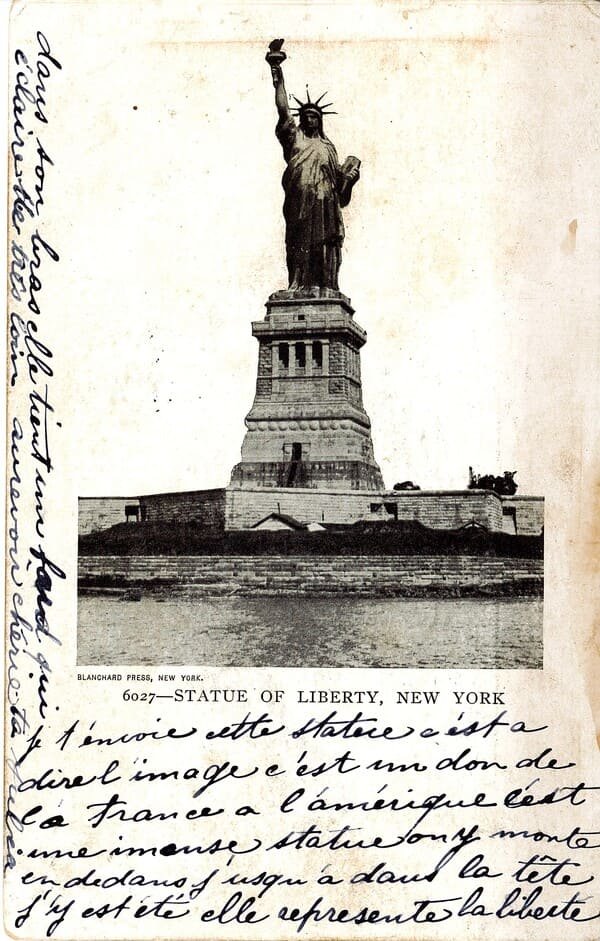 BLANCHARD PRESS, NEW YORK.
6027—STATUE OF LIBERTY, NEW YORK
je t'envoie cette statue c'est a
dire l'image c'est un don de
la France a l'amérique c'est
une imense statue on y monte
en dedans j'usqu'a dans la tête
j'y est été elle represente la liberté
dans son bras elle tient un fard qui
éclaire tres loin aurevoir chérie ta